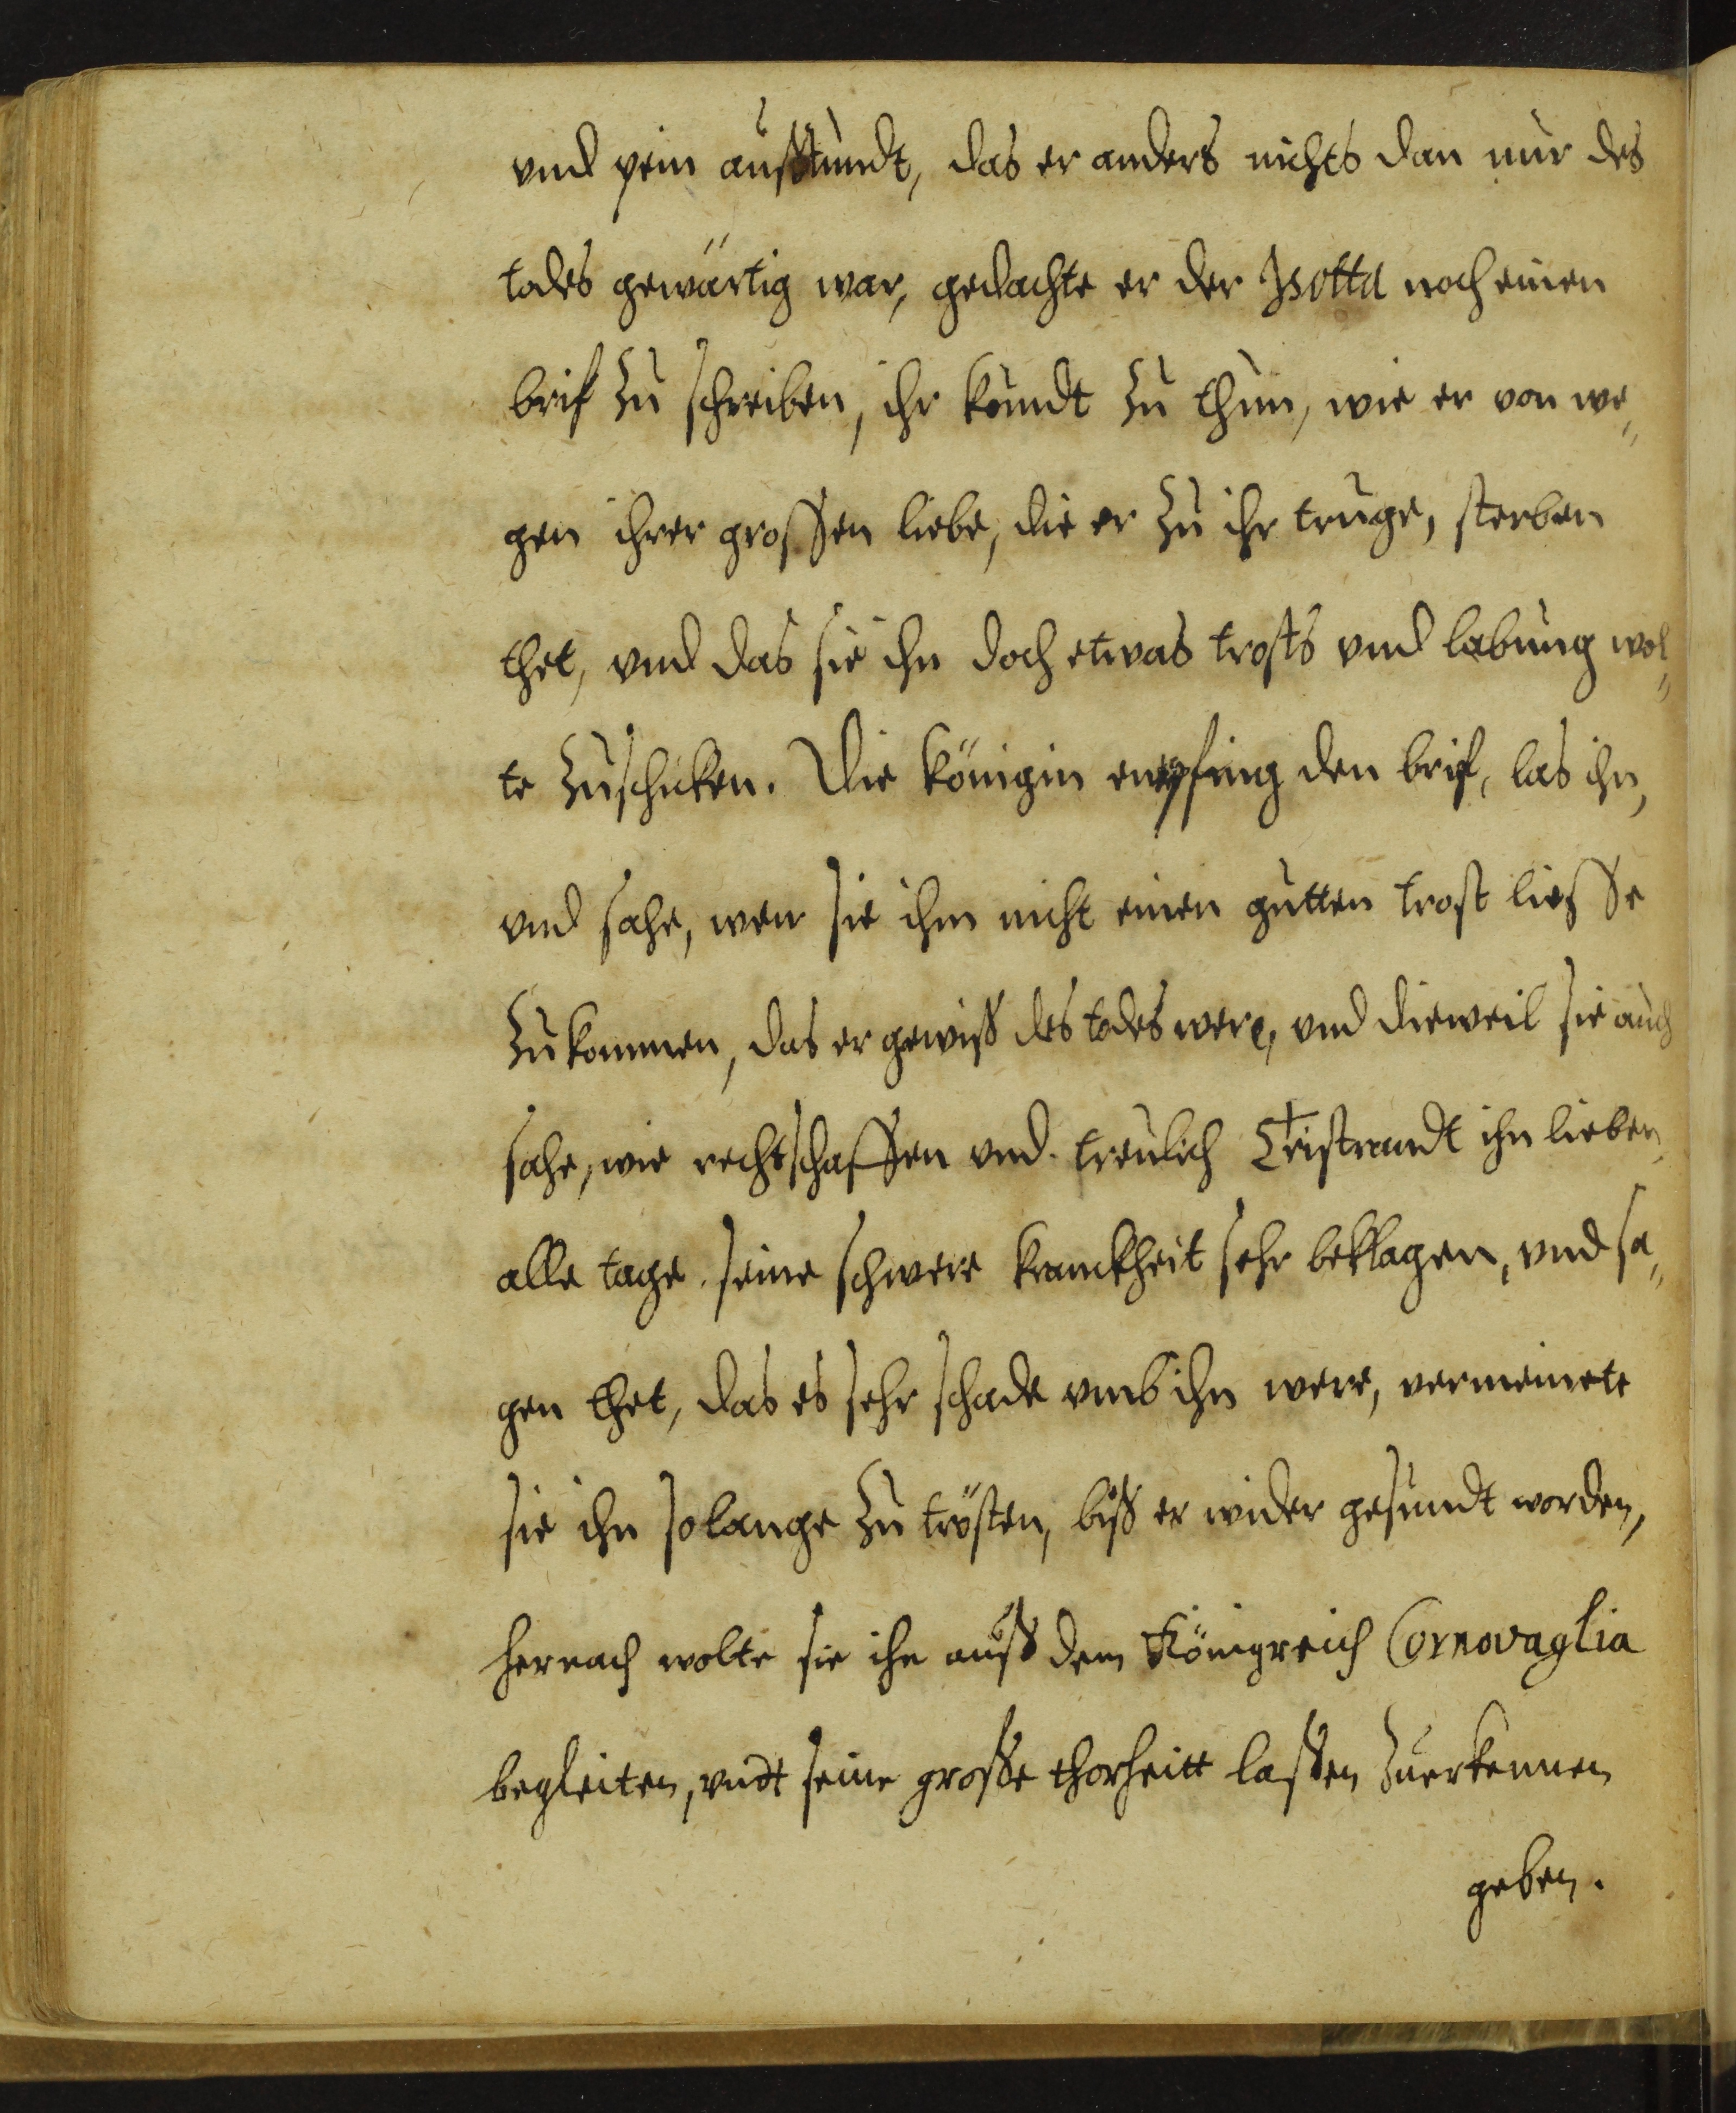 vnd pein außstundt, das er anders nichts dan nur des
todes gewärtig war, gedachte er der Isotta noch einen
brif zu schreiben, ihr kundt zu thun, wie er von we„
gen ihrer grossen liebe, die er zu ihr truge, sterben
thet, vnd das sie ihn doch etwas trosts vnd labung wol„
te zuschicken. Die königin empfing den brif, las ihn,
vnd sahe, wen sie ihm nicht einen gutten trost liesse
zukommen, das er gewiß des todes were, vnd dieweil sie auch
sahe, wie rechtschaffen vnd treulich Tristrandt ihn lieben,
alle tage seine schwere kranckheit sehr beklagen, vnd sa„
gen thet, das es sehr schade vmb ihn were, vermeinete
sie ihn so lange zu trösten, biß er wider gesundt worden,
hernach wolte sie ihn auß dem Königreich Cornovaglia
begleiten, vndt seine große thorheitt laßen zuerkennen
geben.